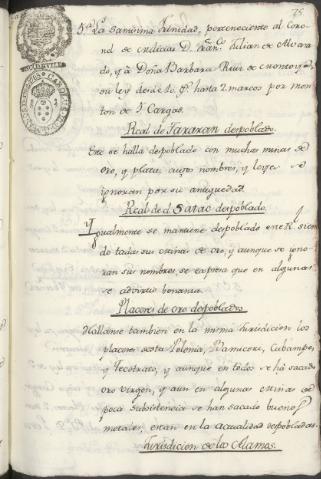 75
5.ª La Santisima Trinidad, perteneciente al Coro-
nel de milicias D.n Fran.co Julian de Alvara-
do, y à Doña Barbara Ruiz de
su ley desde 6. oz hasta 2 marcos por mon-
ton de 5 Cargas.
Real de Taraxan despoblado.
Este se halla despoblado con muchas minas de
oro, y plata, cuyos nombres, y leyes se
ignoran por su antiguedad.
Real de d.n Satac despoblado.
Ygualmente se mantiene despoblado este R.l sien-
do todas sus minas de oro, y aunque se igno-
ran sus nombres se expresa que en algunas
se advirtió bonanza.
Placeres de oro despoblados
Hallanse tambien en la misma Jurisdicion los
placeres Santa Polonia, Bamicori, Cubampo,
y Tecotraes, y aunque en todos se há sacado
oro virgen, y aun en algunas minas de
poca Subsistencia se han sacado buenos
metales, están en la actualidad despobladas.
Jurisdicion de los Alamos.